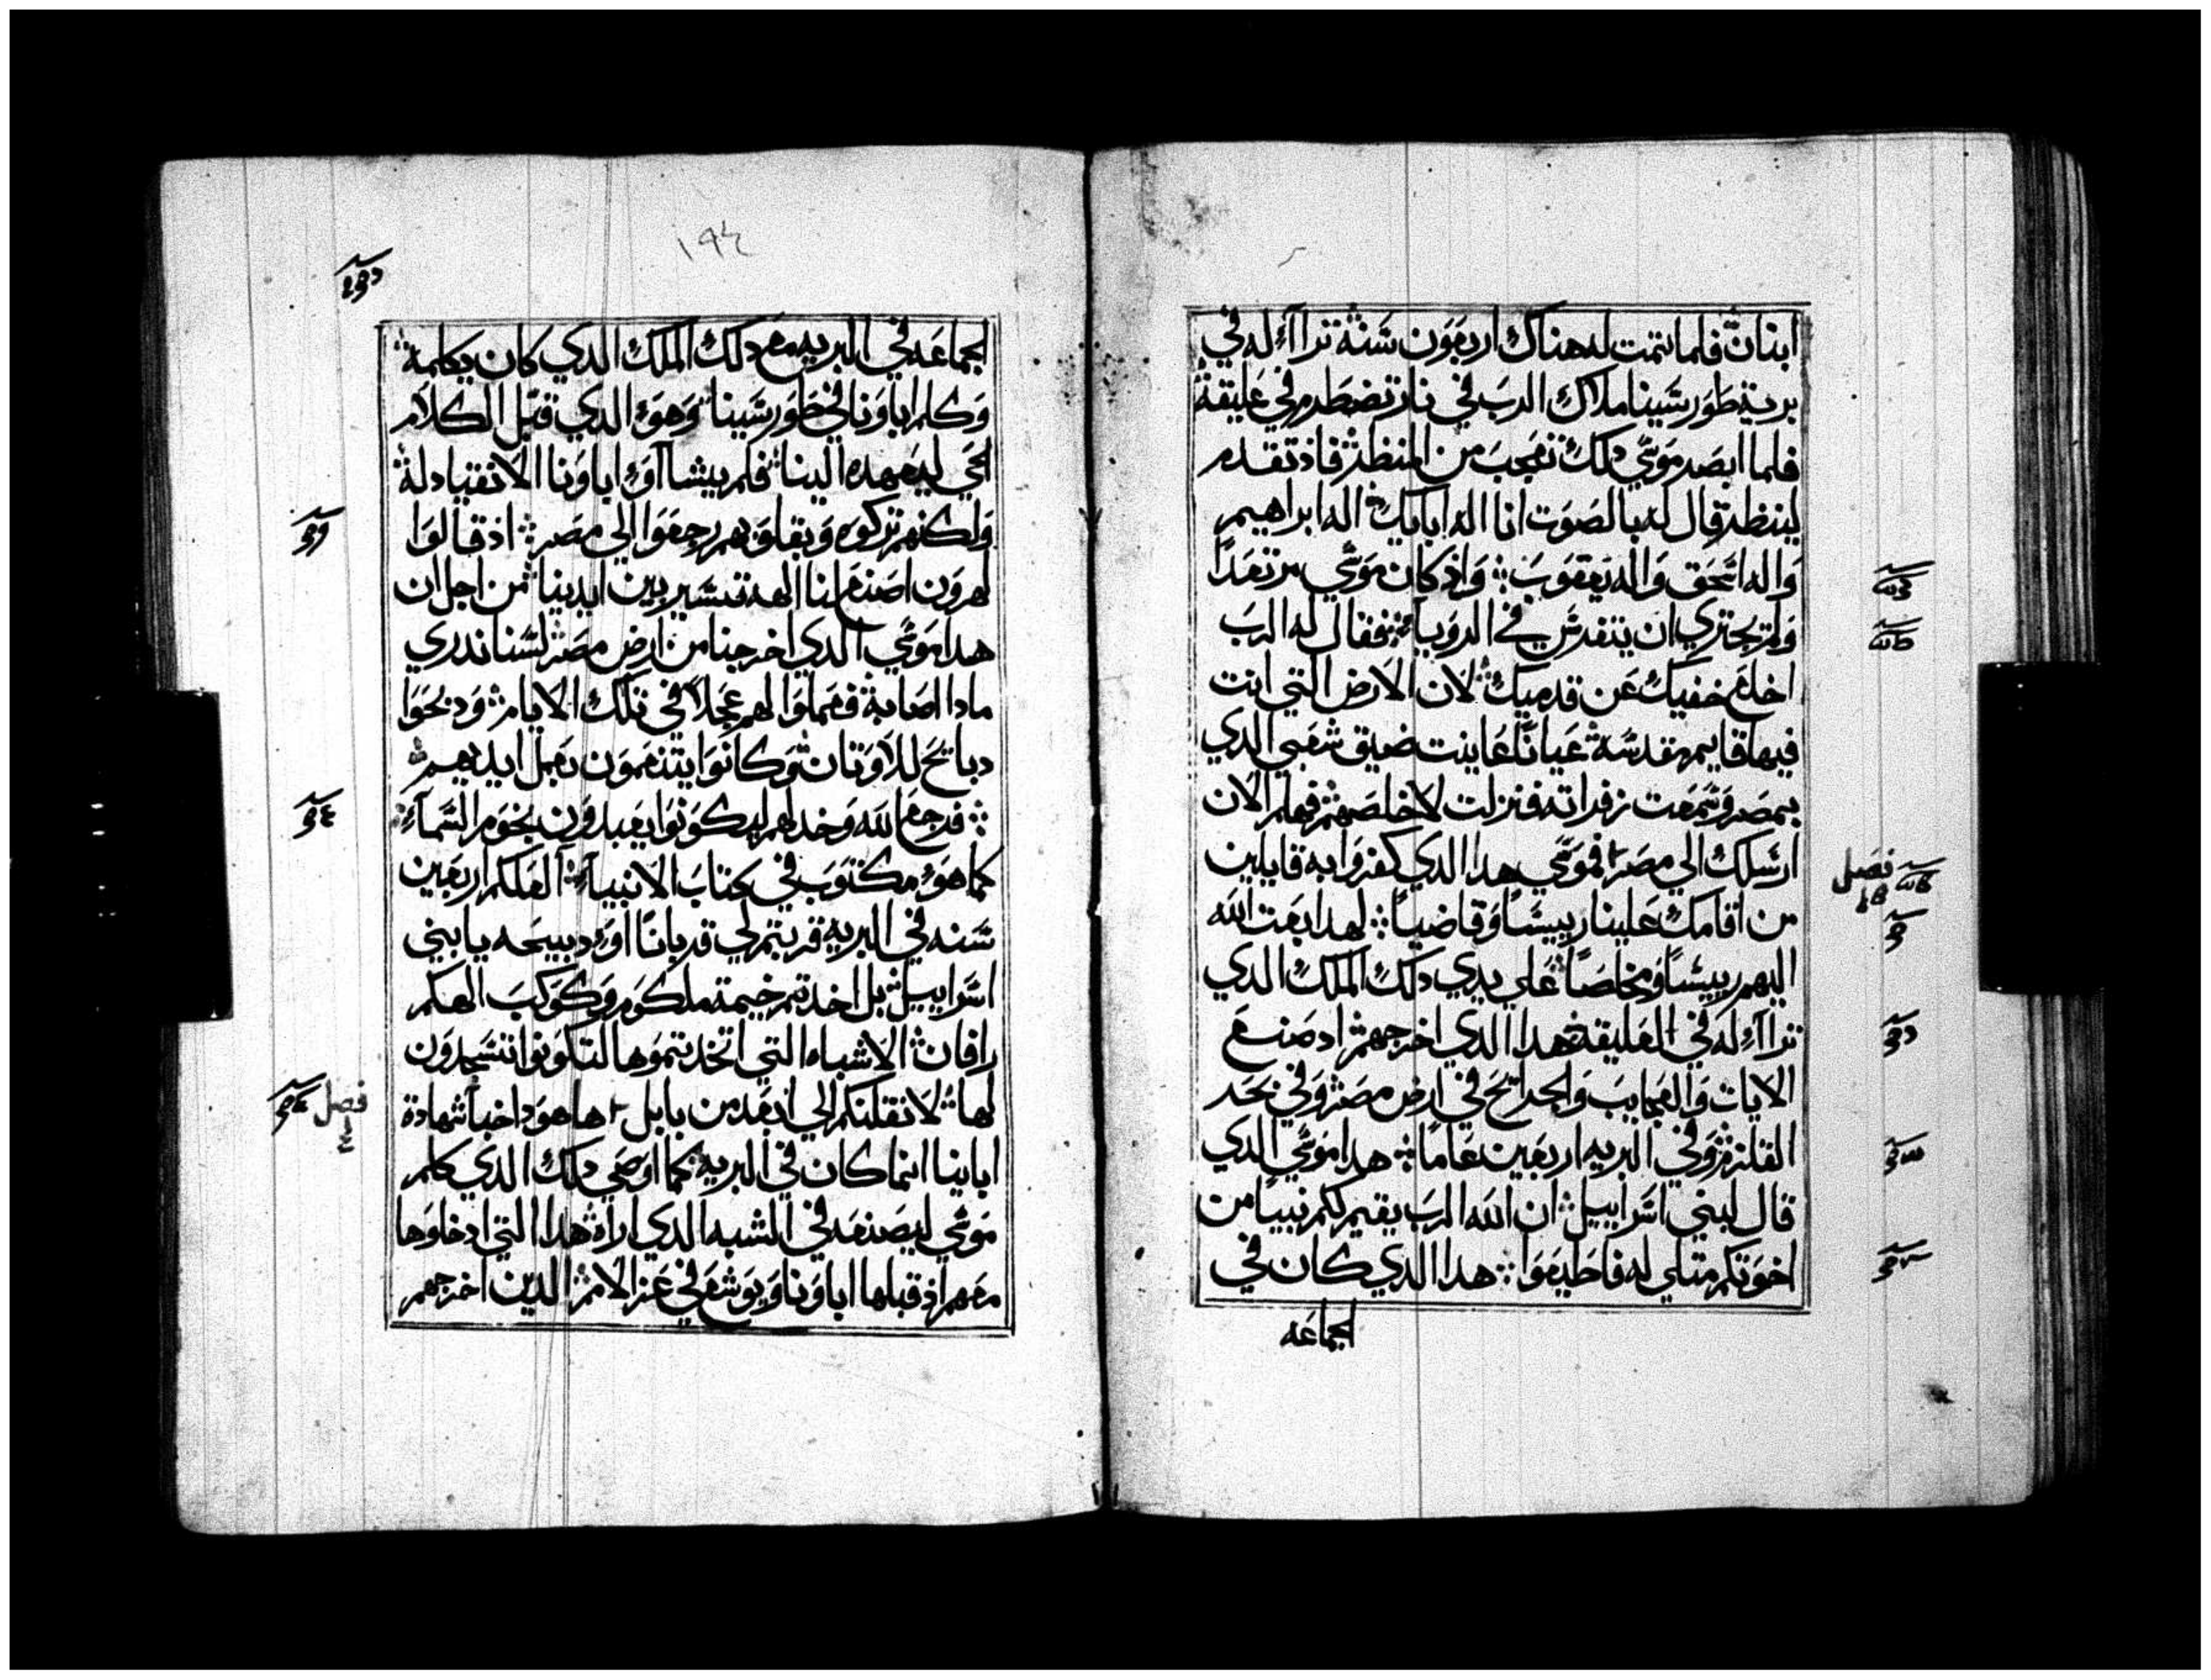 ابنان فلما تمت له هناك اربعون سنة تراآء له في
برية طور سينا ملاك الرب في نار تضطرم في عليقة
فلما ابصر موسي دلك تعجب من المنظر فاذ تقدم
لينظر قال له بالصوت انا اله ابايك اله ابراهيم
واله اسحق واله يعقوب واذ كان موسي مرتعدا
ولم يجتري ان يتفرس في الرويا فقال له الرب
اخلع خفيك عن قدميك لان الارض التي انت
فيها قايم مقدسة عيانا عاينت ضيق شعبي الدي
بمصر وسمعت زفراته فنزلت لاخلصهم فهلم الان
ارسلك الي مصر فموسي هدا الدي كفروا به قايلين
فصل
من اقامك علينا رييسا وقاضيا لهدا بعت الله
اليهم رييسا ومخلصا علي يدي دلك الملك الدي
تراآء له في العليقه هدا الدي اخرجهم اد صنع
الايات والعجايب والجرايح في ارض مصر وفي بحر
القلزم وفي البريه اربعين عاما هدا موسي الدي
قال لبني اسراييل ان الله الرب يقيم لكم نبيا من
اخوتكم متلي له فاطيعوا هدا الدي كان في
الجماعه
١٩٤
الجماعه في البريه مع دلك الملك الدي كان يكلمه
وكلم اباونا في طور سينا وهو الدي قبل الكلام
الحي ليدفعه الينا فلم يشاآو اباونا الانقياد له
ولكنهم تركوه وبقلوبهم رجعوا الي مصر اذ قالوا
لهرون اصنع لنا الهه تسير بين ايدينا من اجل ان
هدا موسي الدي اخرجنا من ارض مصر لسنا ندري
مادا اصابه فعملوا لهم عجلا في تلك الايام ودبحوا
دبايح للاوتان وكانوا يتنعمون بعمل ايديهم
فرجع الله وخدلهم ليكونوا يعبدون نجوم السمآء
كما هو مكتوب في كتاب الانبيآء العلكم اربعين
سنه في البريه قربتم لي قربانا او دبيحه يا بني
اسراييل بل اخدتم خيمة ملكوم وكوكب الهكم
رافان الاشباه التي اتخدتموها لتكونوا تسجدون
لها لانقلنكم الي ابعد من بابل ها هودا خبا شهادة
فصل
اباينا انما كان في البريه كما اوصي دلك الدي كلم
موسي ليصنعه في الشبه الدي اراه هدا التي ادخلوها
معهم اذ قبلها اباونا ويوشع في عز الامم الدين اخرجهم